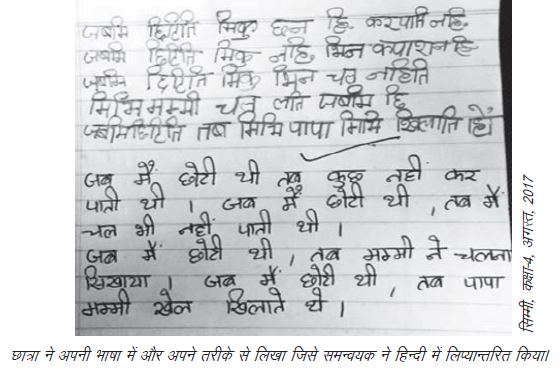 जबमि छिटिति मिकु छन हि करपाति नहि
जबमि छिटिति मिकु नहि मिन कपारान हि
जबमि छिटिति मिकु मिन चत नहिति
मिमि मम्मी चत लति जबमि हि
जबमिछिटिति तब मिमि पापा मिमि खिलाति हिं
जब मैं छोटी थी तब कुछ नहीं कर
पाती थी । जब मैं छोटी थी , तब मैं
चल भी नहीं पाती थी ।
जब मैं छोटी थी , तब मम्मी ने चलना
सिखाया । जब मैं छोटी थी , तब पापा
मम्मी खेल खिलाते थे ।
सिम्मी, कक्षा-4, अगस्त, 2017
छात्रा ने अपनी भाषा में और अपने तरीके से लिखा जिसे समन्वयक ने हिन्दी में लिप्यान्तरित किया।